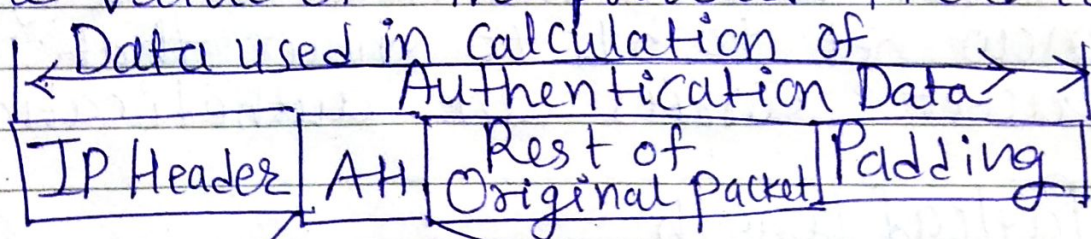 Data used in calculation of
Authentication Data
IP Header AH Rest of Original packet Padding